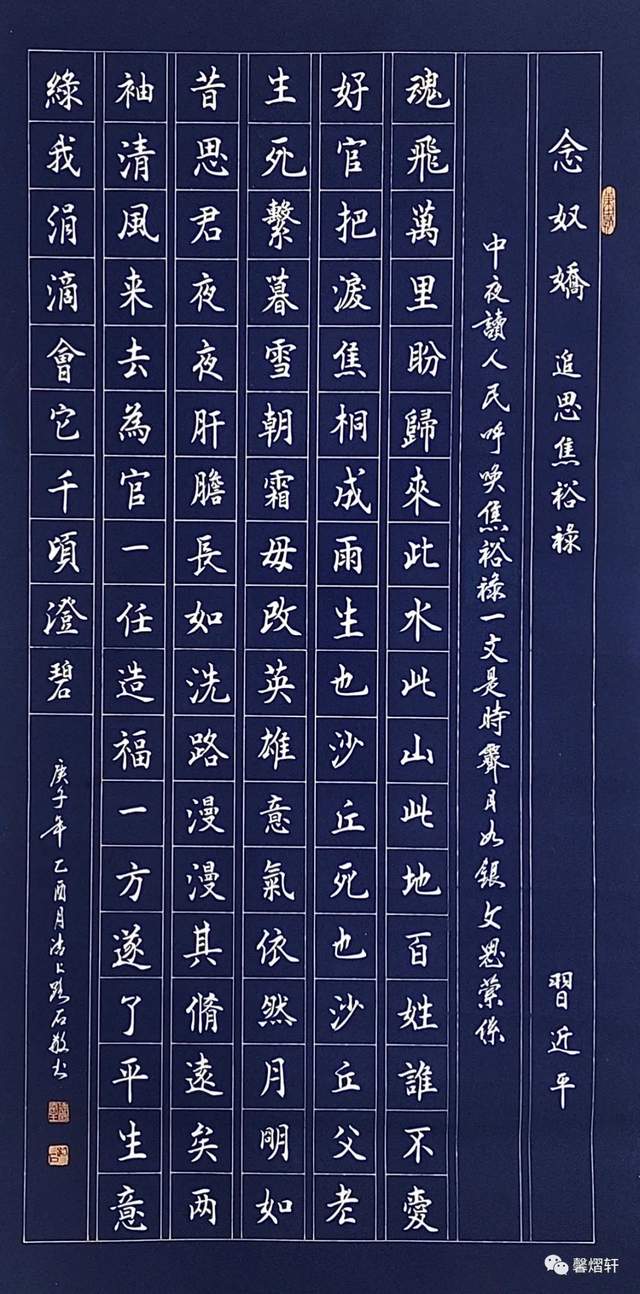 念奴嬌 追思焦裕祿 習近平
中夜讀人民呼喚焦裕祿一文是時霽月如銀文思縈係
魂飛萬里盼歸來此水此山此地百姓誰不愛
好官把淚焦桐成雨生也沙丘死也沙丘父老
生死繫暮雪朝霜毋改英雄意氣依然月明如
昔思君夜夜肝膽長如洗路漫漫其脩遠矣两
袖清風来去為官一任造福一方遂了平生意
綠我涓滴會它千頃澄碧
庚子年乙酉月
馨熠轩